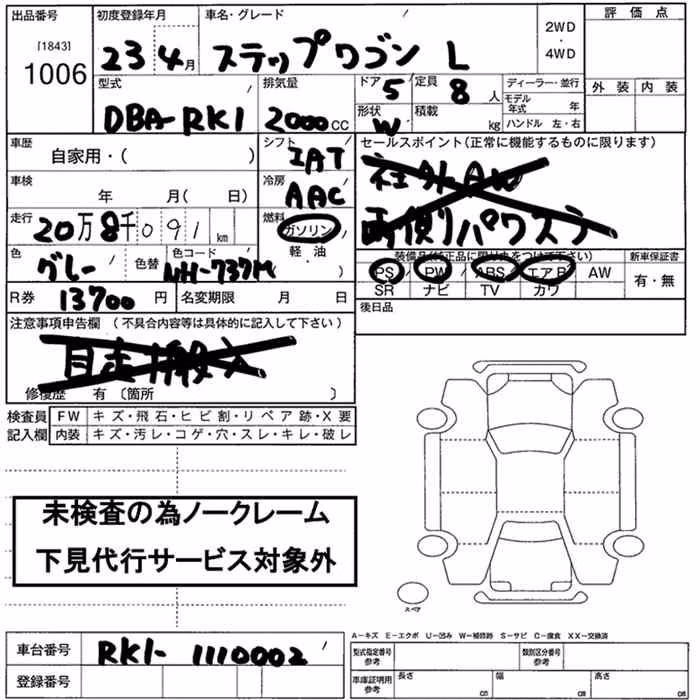 出品番号 初度登録年月 車名・グレード 評価点
[1843]
1006
23 4月 ステップワゴン L
2WD
・
4WD
外装 内装
型式 排気量 ドア 定員 ディーラー・並行
DBA-RK1 2000CC 5 8人
モデル年式 年
形状 積載 ハンドル 左・右
W kg
車歴 シフト セールスポイント(正常に機能するものに限ります)
自家用・( ) IAT
社外AW
車検 冷房
年 月( 日) AAC
両側パワステ
走行 燃料
20万8千091km ガソリン
軽・油
色 色替 色コード 装備品(純正品に限り○をつけて下さい) 新車保証書
グレー NH-737M
PS PW ABS エアB AW 有・無
SR ナビ TV カワ
R券 13700円 名変期限 月 日 後日品
注意事項申告欄(不具合内容等は具体的に記入して下さい)
自走搬入
修復歴 有〔箇所 〕
検査員 FW キズ・飛石・ヒビ割・リペア跡・X要
記入欄 内装 キズ・汚レ・コゲ・穴・スレ・キレ・破レ
未検査の為ノークレーム
下見代行サービス対象外
スペア
A-キズ E-エクボ U-凹み W-補修跡 S-サビ C-腐食 XX-交換済
車台番号 RK1-1110002
型式指定番号参考 類別区分番号参考
登録番号
車庫証明用参考 長さ cm 幅 cm 高さ cm